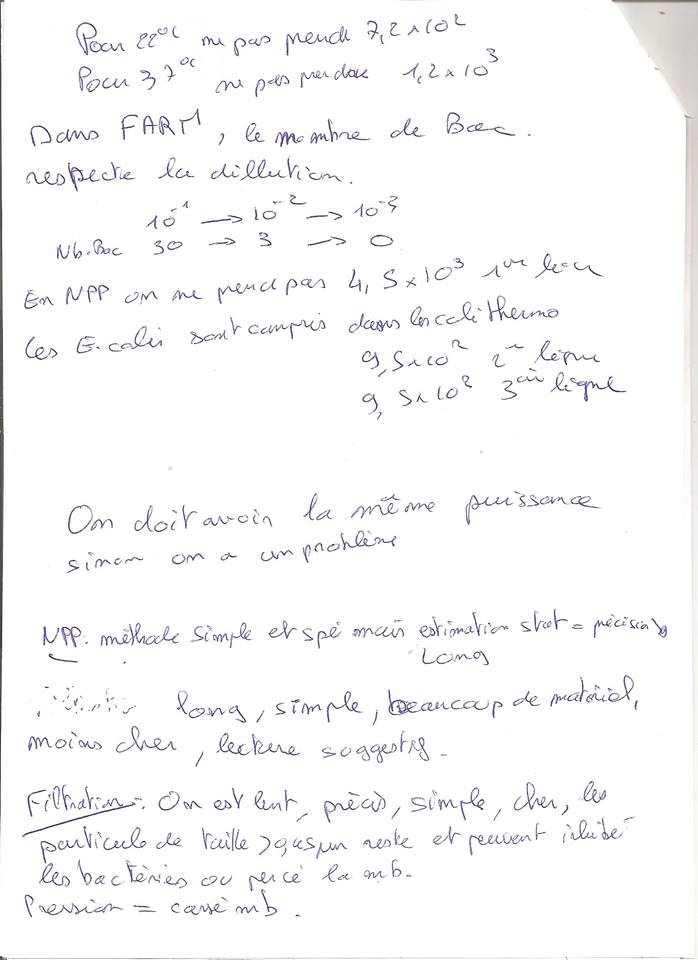 Pour 22°C ne pas prendre 7,2x10²
Pour 37°C ne pas prendre 1,2x10³
Dans FARM, le nombre de Bac.
respecte la dillution.
10⁻¹ → 10⁻² → 10⁻³
Nb.Bac 30 → 3 → 0
En NPP on ne prend pas 4,5x10³ 1ère
les E.coli sont compris dans les coli thermo
9,5x10² 2 ligne
9,5x10² 3 ligne
On doit avoir la même puissance
sinon on a un problème
NPP: méthode simple et spé mais estimation stat = précision
Long
long, simple, beaucoup de matériel,
moins cher, lecture suggestif.
Filtration: On est lent, précis, simple, cher, les
particule de taille > reste et peuvent
les bactéries ou percé la mb.
Pression = cassé mb.